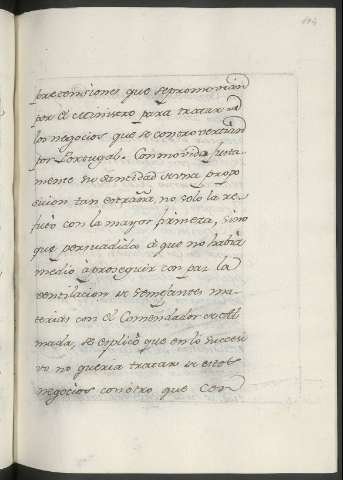 104
pretensiones que se promovian
por el Ministro para tratar
los negocios que se controvertian
por Portugal. Conmovida justa
mente Su Santidad de una propo
sicion tan estraña, no solo la re
futó con la mayor firmeza, sino
que persuadido à que no habia
medio à proseguir con paz la
ventilacion de semejantes ma
terias con el Comendador de Al
mada, se esplicó que en lo succesi
vo no queria tratar de estos
negocios con otro que con